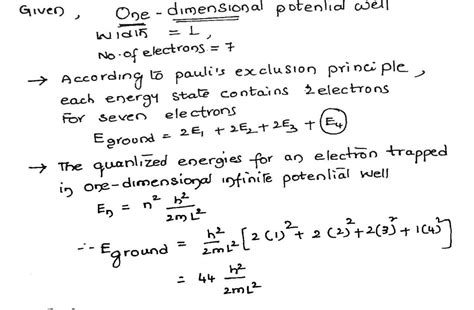 Given, One-dimensional potential well
Width = L,
No. of electrons = 7
→ According to pauli's exclusion principle,
each energy state contains 2electrons
For seven electrons
Eground = 2E₁ + 2E₂ + 2E₃ + E₄
→ The quantized energies for an electron trapped
in one-dimensional infinite potential well
Eₙ = n² h²/2mL²
∴ Eground = h²/2mL² [2(1)² + 2(2)² + 2(3)² + 1(4)²]
= 44 h²/2mL²